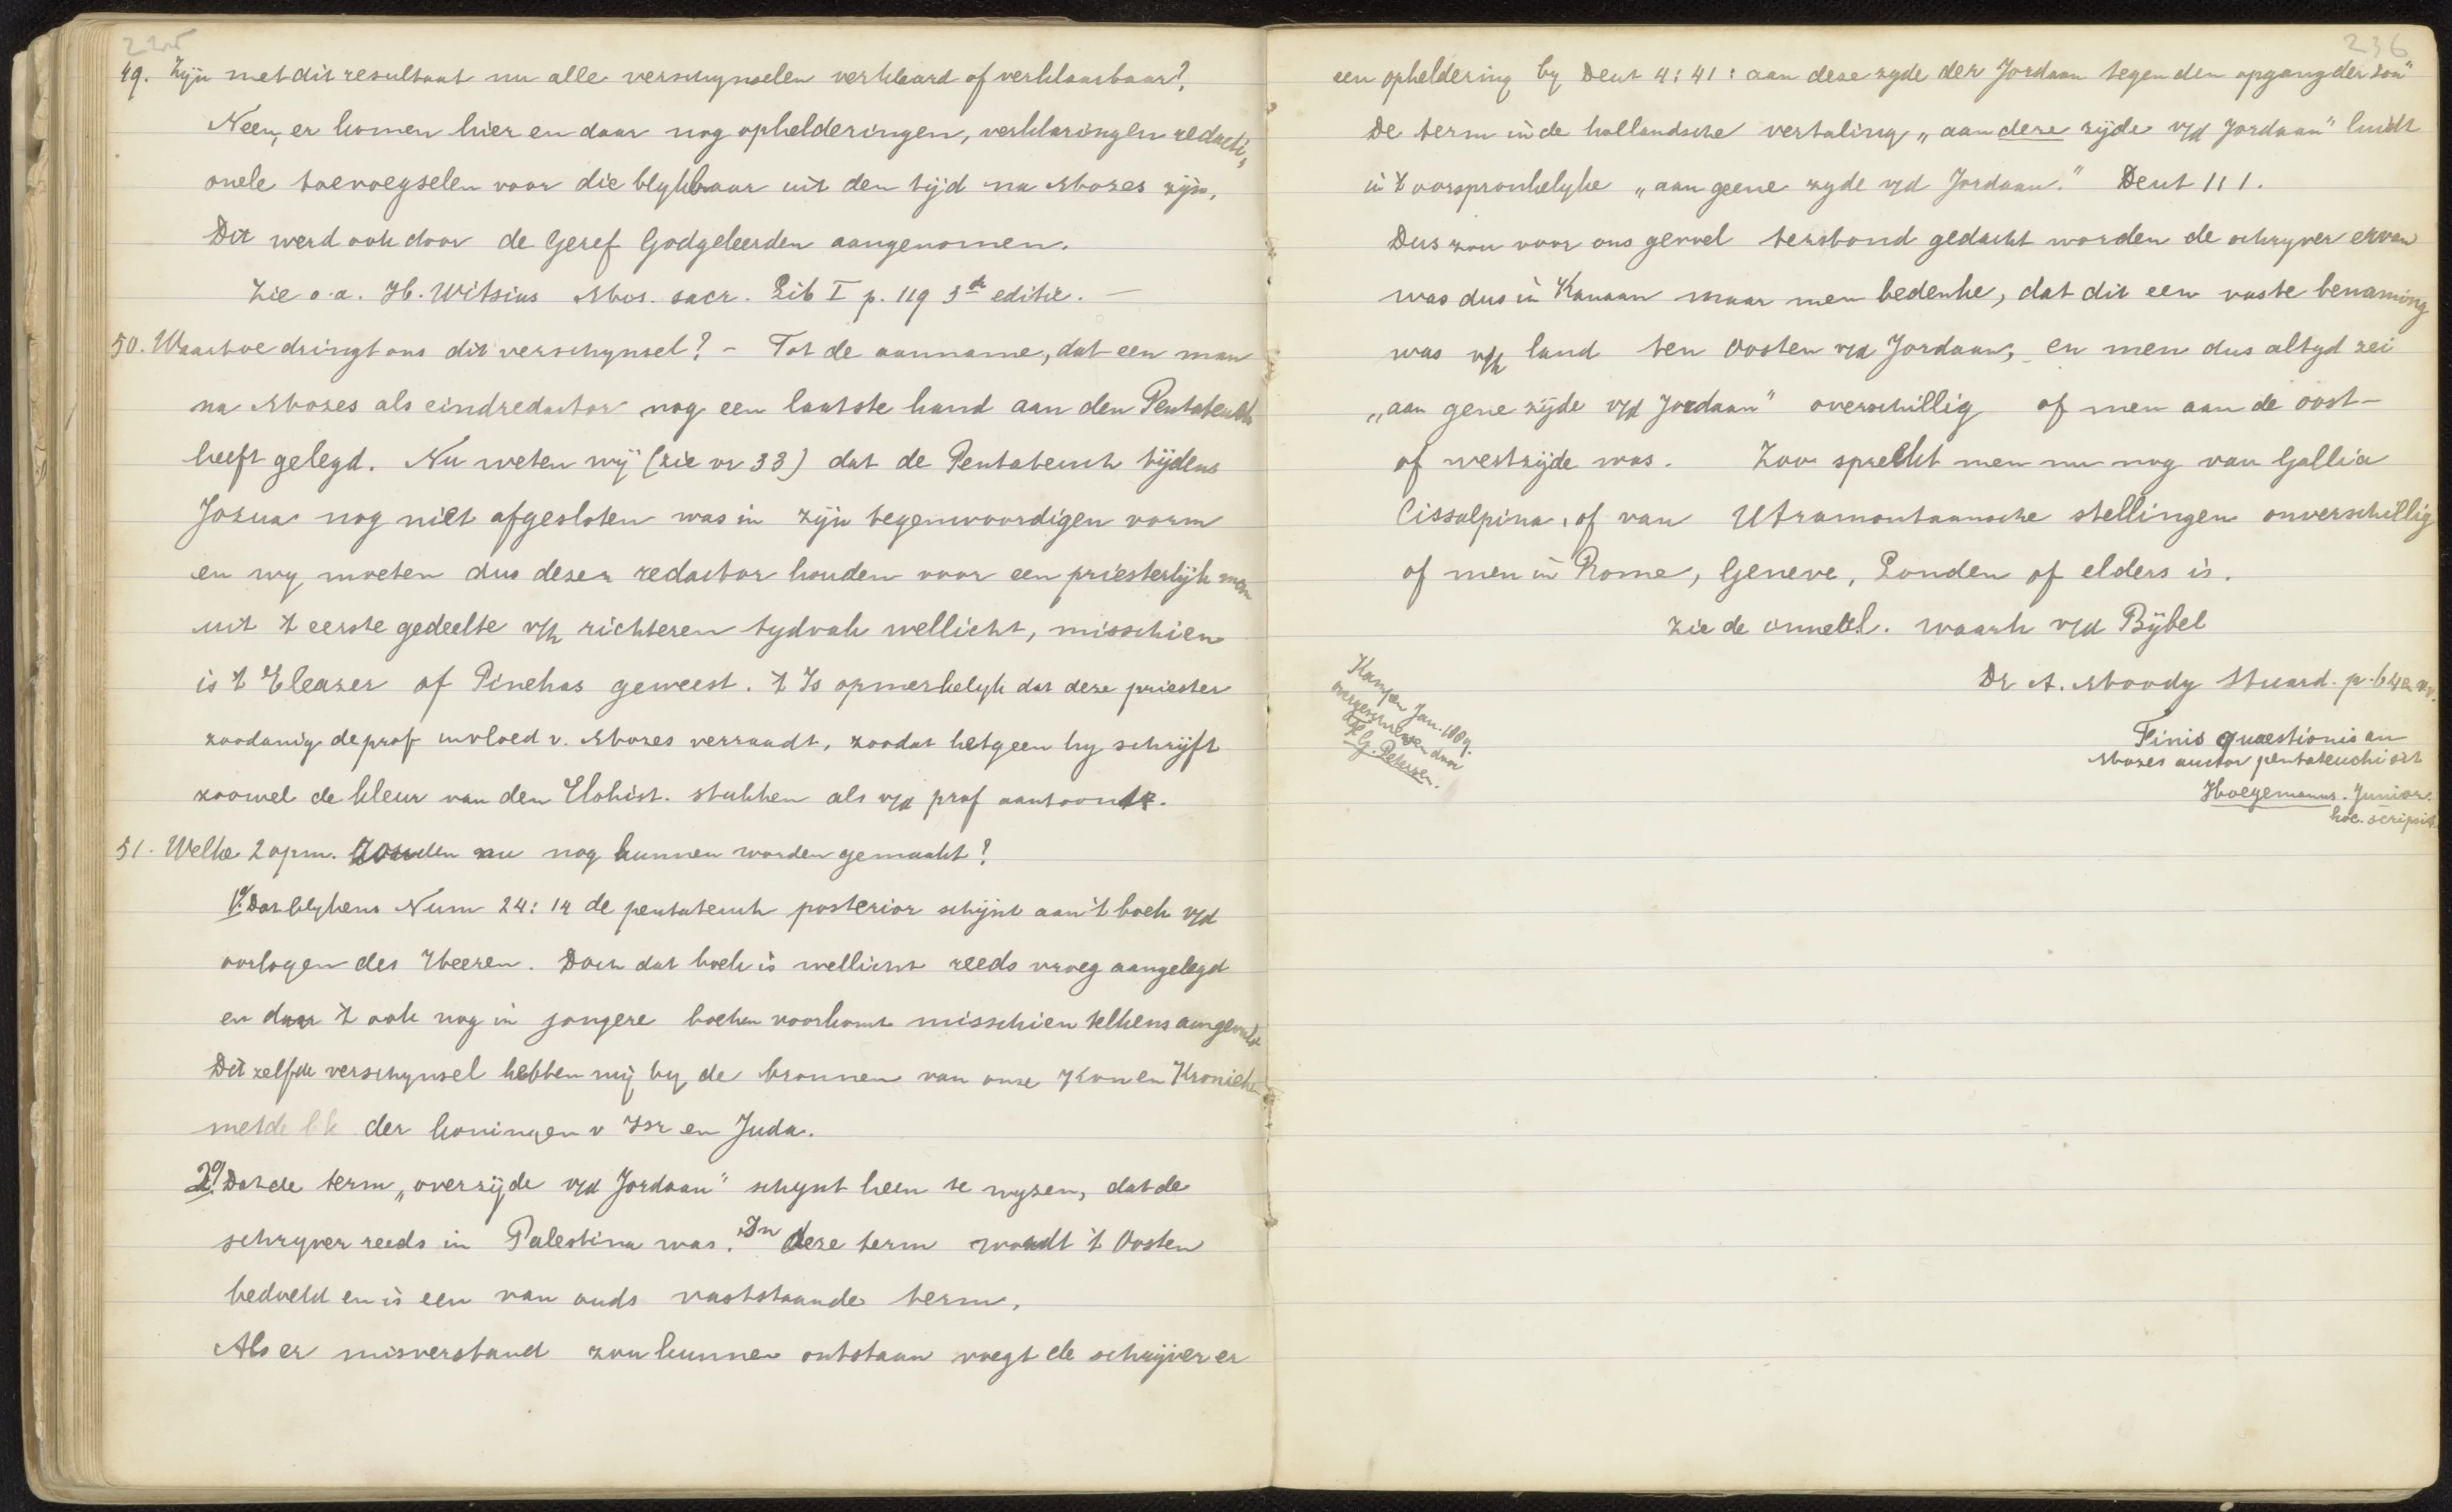 49. Zijn met dit resultaat nu alle verschynselen verklaard of verklaarbaar?
Neen, er komen hier en daar nog ophelderingen, verklaringen redacti,
onele toevoegselen voor die blykbaar uit den tijd na Mozes zijn.
Dit werd ook door de Geref Godgeleerden aangenomen.
Zie o.a. H. Witsius Mos. sacr. Lib I p. 119 3de editie. —
50. Waartoe dringt ons dit verschynsel? – Tot de aanname, dat een man
na Mozes als eindredactor nog een laatste hand aan den Pentateuch
heeft gelegd. Nu weten wij (zie vr 33) dat de Pentateuch tijdens
Jozua nog niet afgesloten was in zijn tegenwoordigen vorm
en wy moeten dus dezen redactor houden voor een priesterlijk man
uit 't eerste gedeelte v/h richteren tydvak wellicht, misschien
is 't Eleazer of Pinehas geweest. 't Is opmerkelyk dat deze priester
zoodanig de prof invloed v. Mozes verraadt, zoodat hetgeen hy schrijft
zoowel de kleur van den Elohist. stukken als v/d prof aantoont.
51. Welke 2 opm. zouden nu nog kunnen worden gemaakt?
1o. Dat blykens Num 24:14 de pentateuch posterior schijnt aan 't boek v/d
oorlogen des Heeren. Doch dat boek is wellicht reeds vroeg aangelegd
en daar 't ook nog in jongere boeken voorkomt misschien telkens aangevuld
Dit zelfde verschynsel hebben wij by de bronnen van onze Kon en Kronieken
met de bk der koningen v Isr en Juda.
2o. Dat de term „overzijde v/d Jordaan" schynt heen te wyzen, dat de
schryver reeds in Palestina was. In deze term wordt 't Oosten
bedoeld en is een van ouds vaststaande term.
Als er misverstand zou kunnen ontstaan voegt de schrijver er
236
een opheldering by Deut 4:41: aan deze zyde der Jordaan tegen den opgang der zon"
De term in de hollandsche vertaling „aan deze zijde v/d Jordaan" luidt
in 't oorspronkelyke „aan geene zyde v/d Jordaan." Deut 1:1.
Dus zou voor ons gevoel terstond gedacht worden de schryver ervan
was dus in Kanaan maar men bedenke, dat dit een vaste benaming
was v/h land ten Oosten v/d Jordaan, en men dus altyd zei
„aan gene zijde v/d Jordaan" overschillig of men aan de oost–
of westzijde was. Zoo spreekt men nu nog van Gallia
Cissalpina, of van Utramontaansche stellingen onverschillig
of men in Rome, Geneve, Londen of elders is.
zie de onnetl. waarh v/d Bijbel
Dr A. Moody Stuard. p. 64 en vv.
Kampen Jan. 1889.
overgeschreven door
G. Petersen.
Finis quaestionis an
Mozes auctor pentateuchi sit
Hoegemanus. Junior.
hoc. scripsit